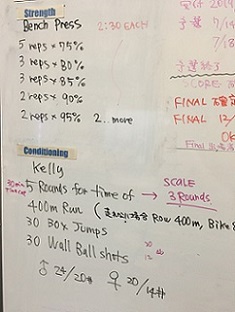 Strength
Bench Press 2:30 EACH
5 reps × 75%
3 reps × 80%
3 reps × 85%
2 reps × 90%
2 reps × 95% 2.. more
Conditioning
Kelly
5 Rounds for time of → SCALE
3 Rounds
400m Run ( Row 400m, Bike
30 Box Jumps
30 Wall Ball shots
♂ 24/20 ♀ 20/14
2019
7/
7/18
CORE
FINAL
FINAL 12/
OK
Final